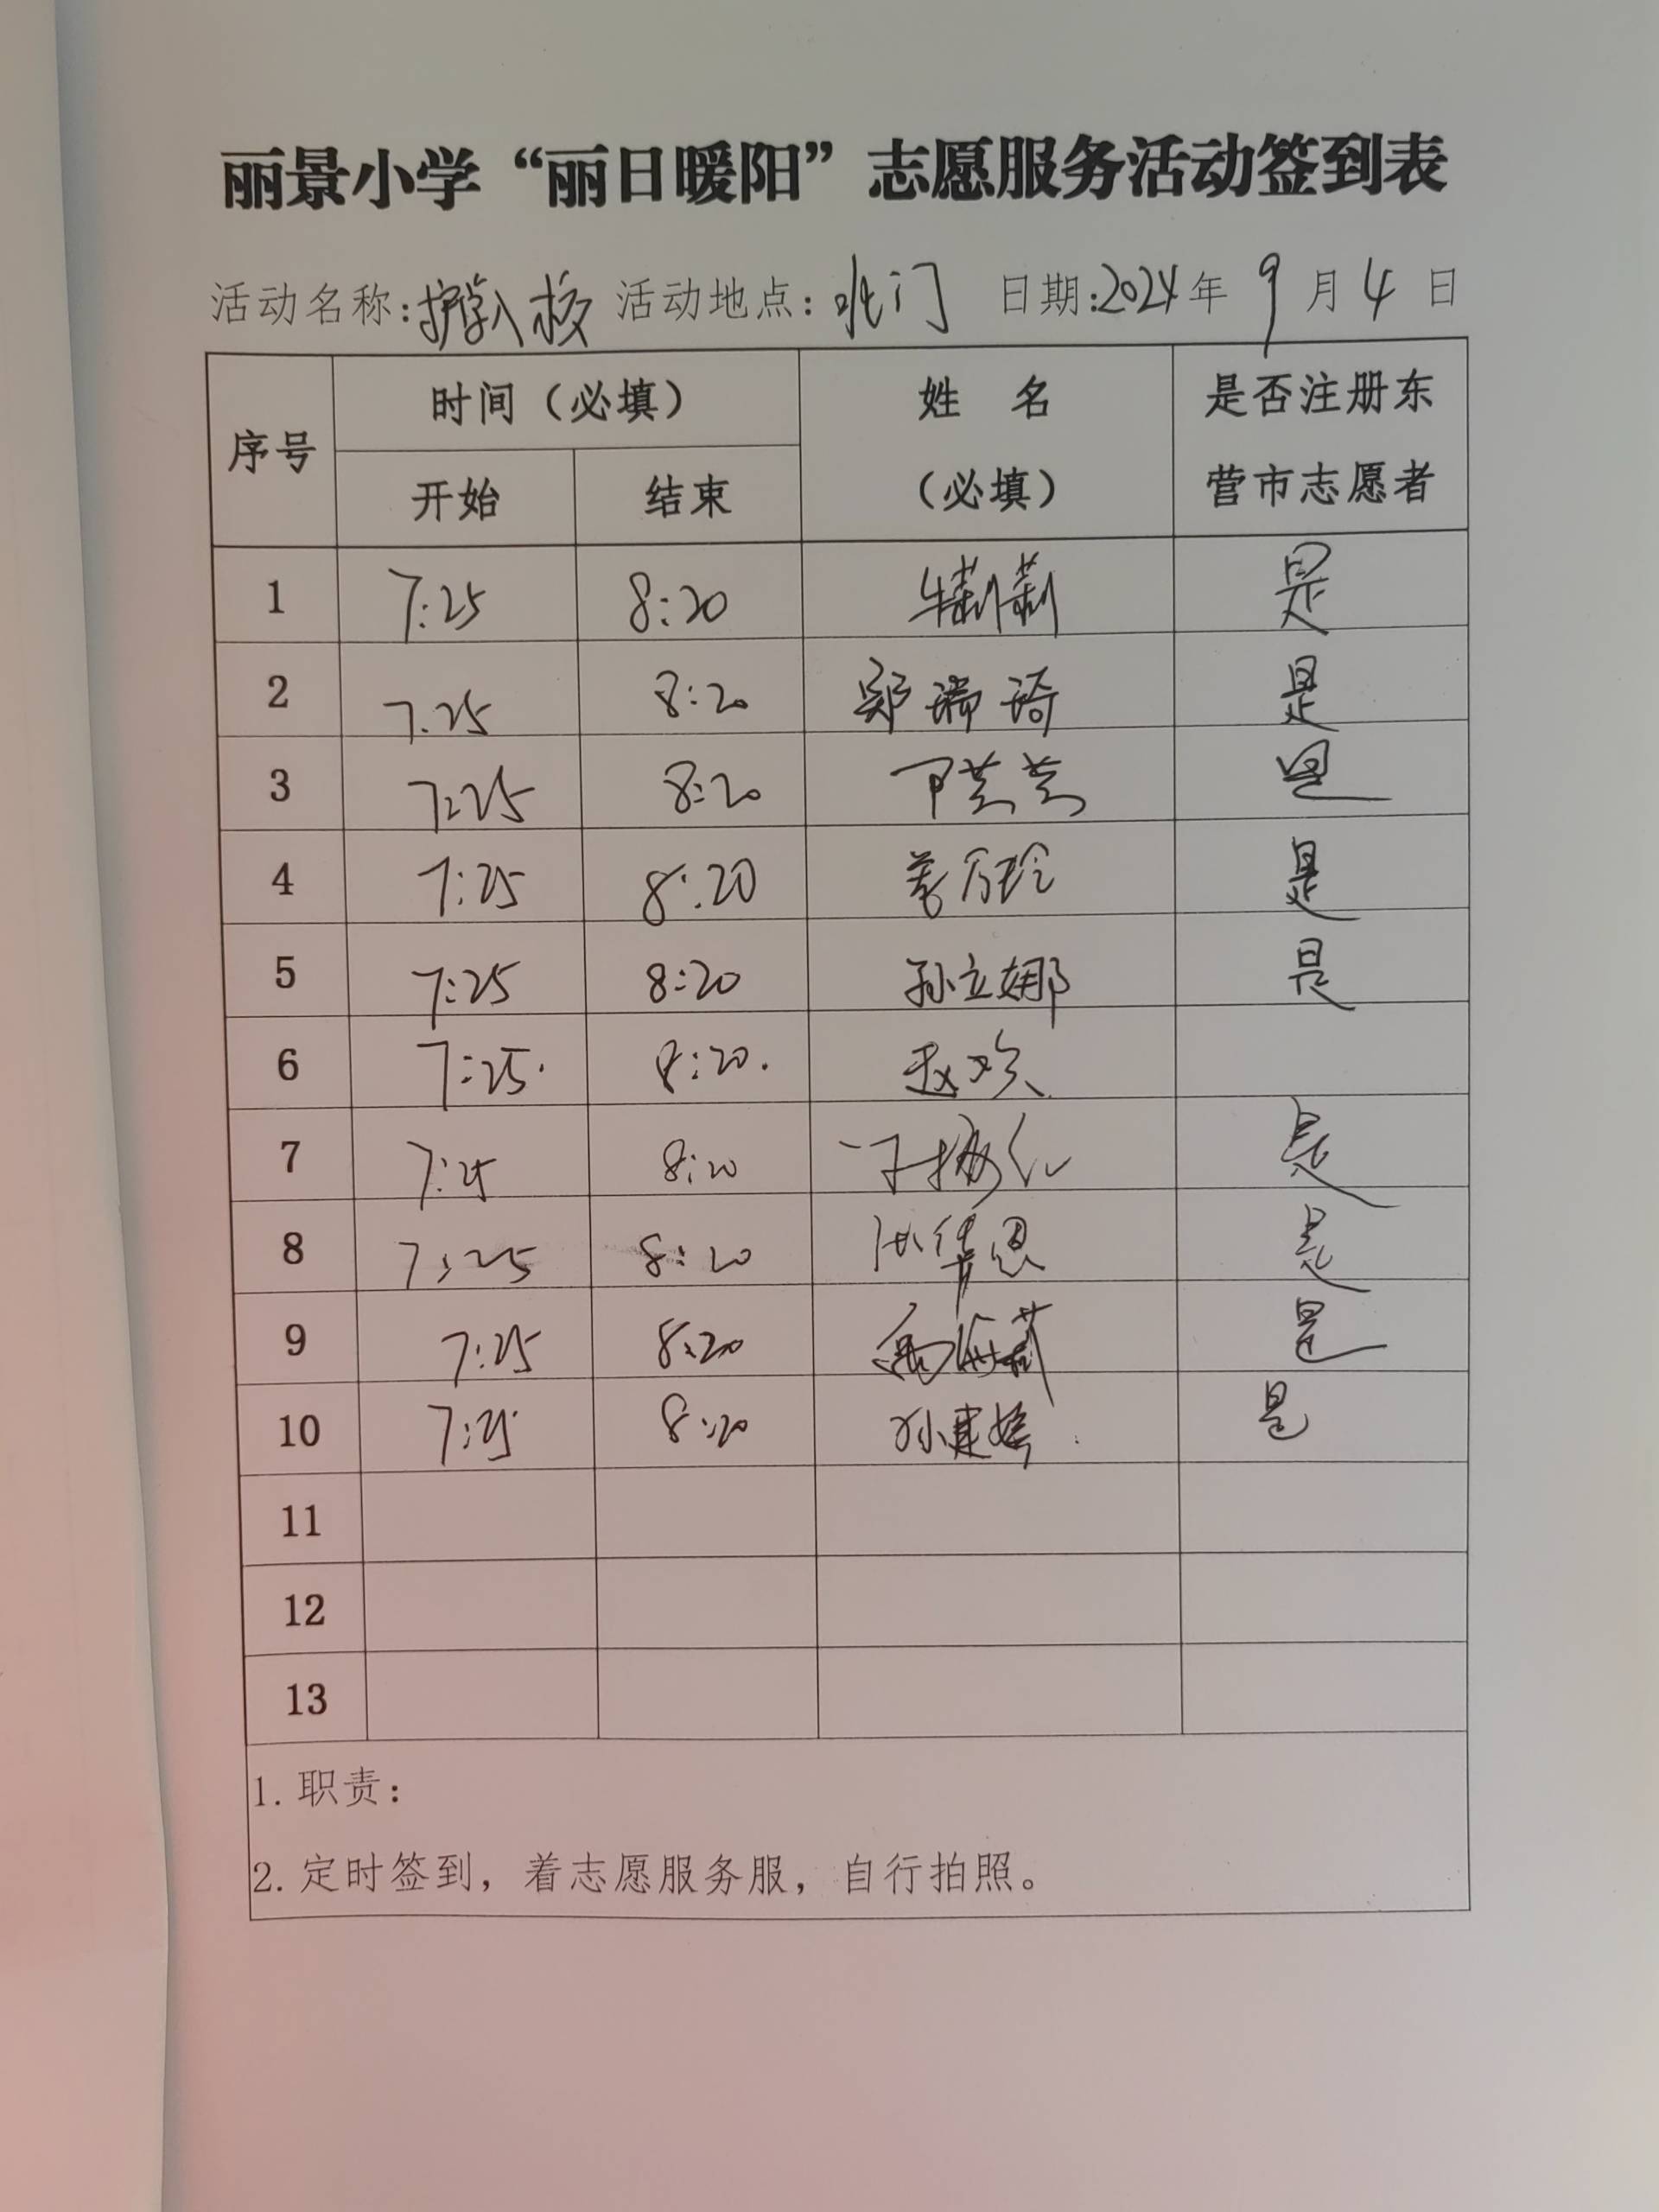 丽景小学“丽日暖阳”志愿服务活动签到表
活动名称:护学入校 活动地点:北门 日期:2024年 9月 4日
序号 时间（必填） 姓 名（必填） 是否注册东营市志愿者
开始 结束
1 7:25 8:20 牛莉莉 是
2 7:25 8:20 郑瑞琦 是
3 7:25 8:20 是
4 7:25 8:20 是
5 7:25 8:20 孙立娜 是
6 7:25. 8:20. 赵欢
7 7:25 8:20 是
8 7:25 8:20 是
9 7:25 8:20 是
10 7:25 8:20 是
11
12
13
1. 职责：
2. 定时签到，着志愿服务服，自行拍照。